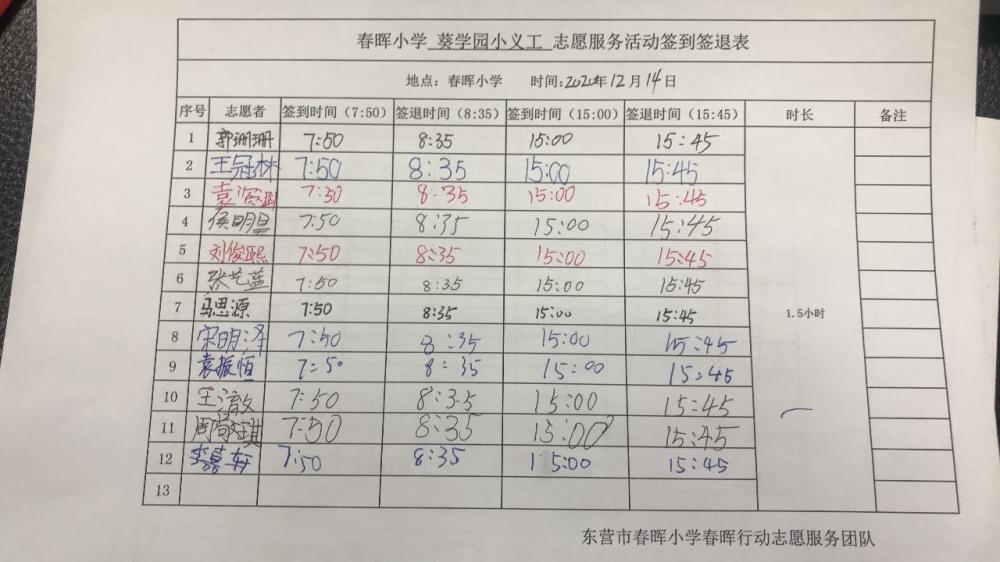 春晖小学 葵学园小义工 志愿服务活动签到签退表
地点：春晖小学 时间:2020年12月14日
序号 志愿者 签到时间（7:50） 签退时间（8:35） 签到时间（15:00） 签退时间（15:45） 时长 备注
1 郭珊珊 7:50 8:35 15:00 15:45
2 王冠林 7:50 8:35 15:00 15:45
3 袁 7:50 8:35 15:00 15:45
4 侯明昊 7:50 8:35 15:00 15:45
5 刘俊熙 7:50 8:35 15:00 15:45
6 张艺蓝 7:50 8:35 15:00 15:45
7 马思源 7:50 8:35 15:00 15:45
1.5小时
8 宋明泽 7:50 8:35 15:00 15:45
9 袁振恒 7:50 8:35 15:00 15:45
10 王澈 7:50 8:35 15:00 15:45
11 周敬琪 7:50 8:35 15:00 15:45
12 李嘉轩 7:50 8:35 15:00 15:45
13
东营市春晖小学春晖行动志愿服务团队